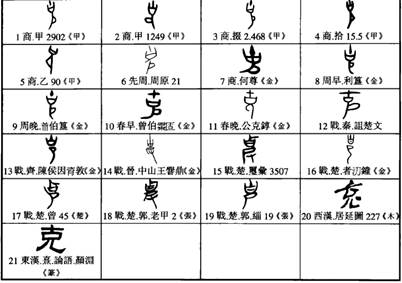 1 商.甲 2902《甲》
2 商.甲 1249《甲》
3 商.掇 2.468《甲》
4 商.拾 15.5《甲》
5 商.乙 90《甲》
6 先周.周原 21
7 商.何尊《金》
8 周早.利簋《金》
9 周晚.曾伯簋《金》
10 春早.曾伯《金》
11 春晚.公克錞《金》
12 戰.秦.詛楚文
13 戰.齊.陳侯因𬁼敦《金》
14 戰.晉.中山王響鼎《金》
15 戰.楚.璽彙 3507
16 戰.楚.者汈鐘《金》
17 戰.楚.曾 45《楚》
18 戰.楚.郭.老甲 2《張》
19 戰.楚.郭.緇 19《張》
20 西漢.居延圖 227《木》
21 東漢.熹.論語.顏淵
《篆》